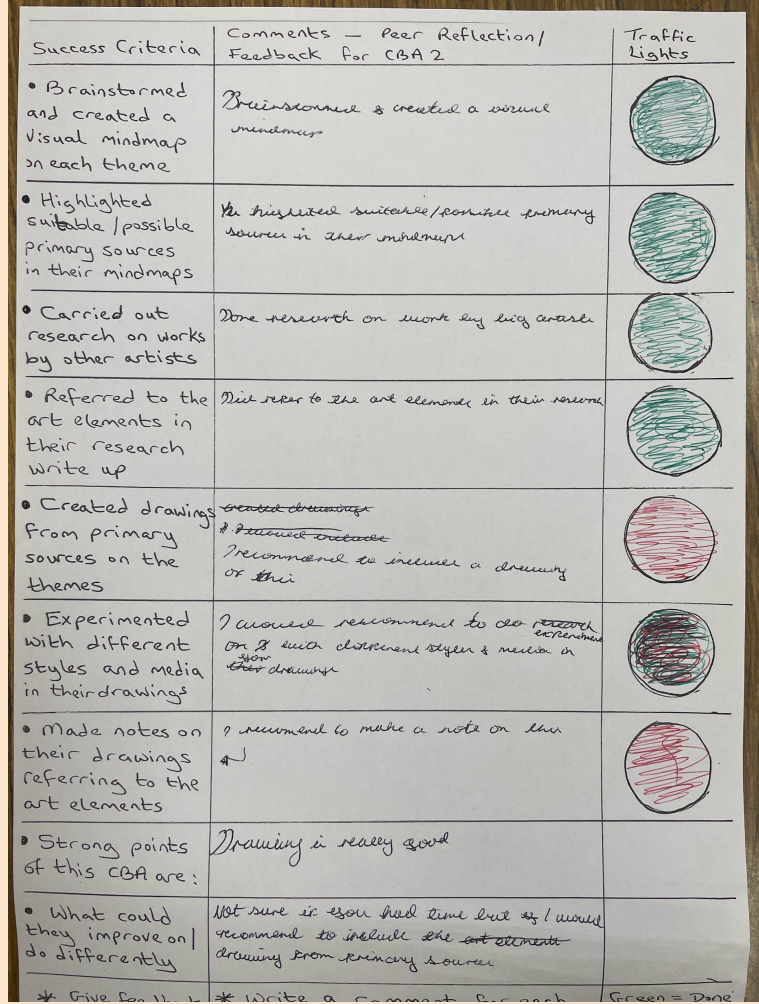 Success Criteria
Comments — Peer Reflection/
Feedback for CBA 2
Traffic
Lights
• Brainstormed
and created a
Visual mindmap
on each theme
Brainstormed & created a visual
mindmap
• Highlighted
suitable/possible
primary sources
in their mindmaps
highlited suitable/possible primary
sources in their mindmaps
• Carried out
research on works
by other artists
Done research on work by big artists
• Referred to the
art elements in
their research
write up
Did refer to the art elements in their research
• Created drawings
from primary
sources on the
themes
created drawings
I recommend to include a drawing
of this
• Experimented
with different
styles and media
in their drawings
I would rescommend to do research experiment
on & with different styles & media in
their your drawings
• Made notes on
their drawings
referring to the
art elements
I recommend to make a note on this
• Strong points
of this CBA are:
Drawing is really good
• What could
they improve on/
do differently
Not sure if you had time but I would
recommend to include the art elements
drawing from primary sources
* Give
* Write a comment for each
Green = Done